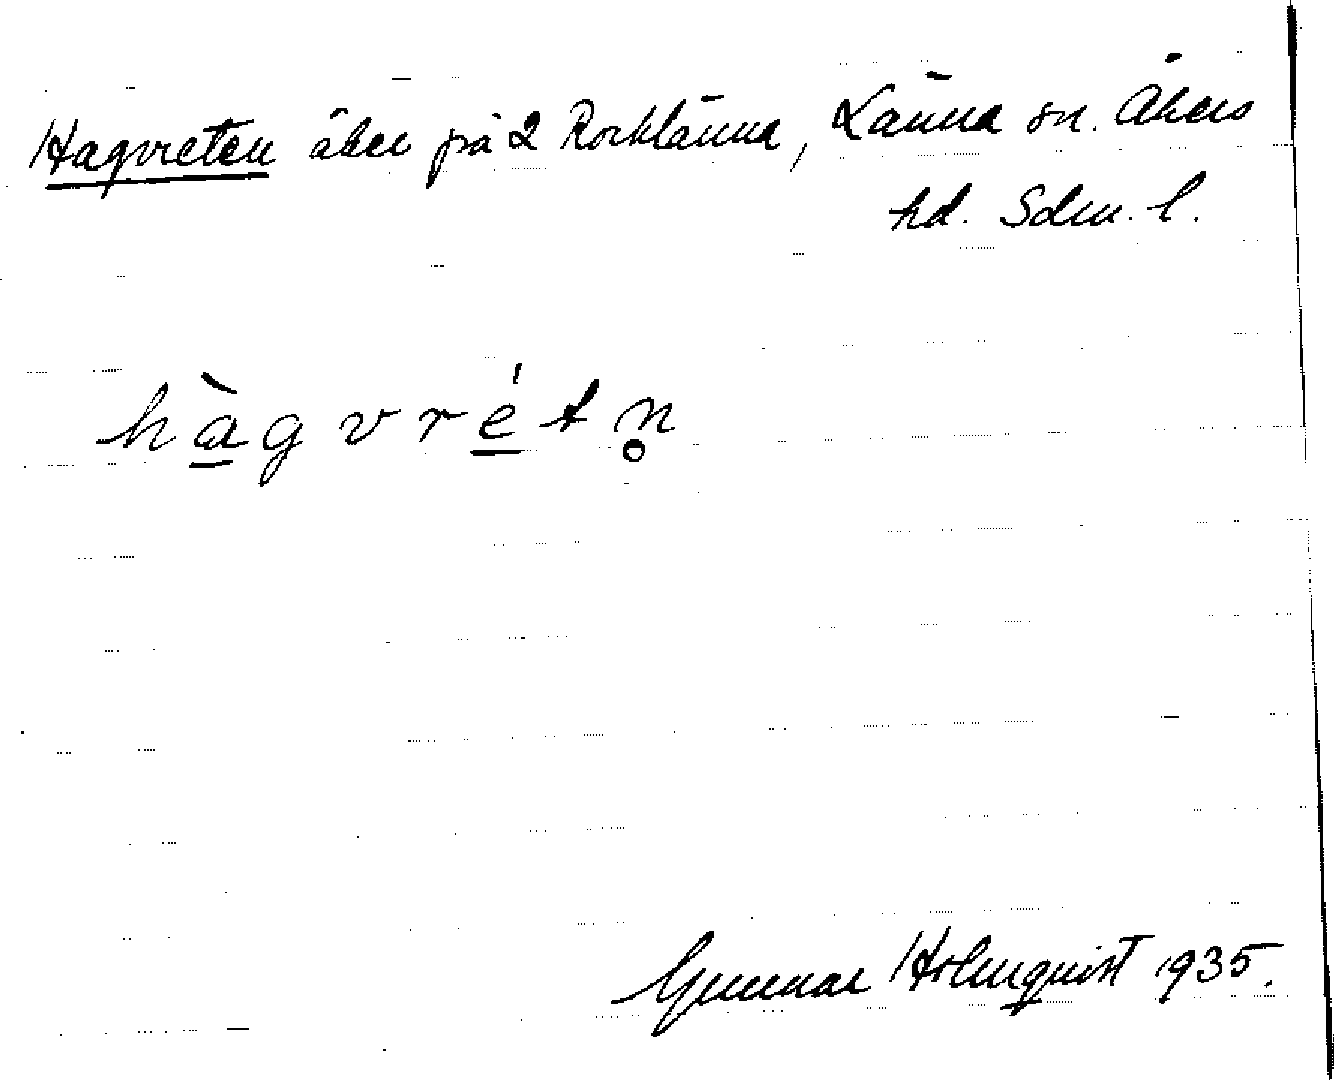 Hagvreten åker på 2 Rocklänna, Länna sn. Åkers
hd. Sdm. l.
hàgvrétn̥
Gunnar Holmquist 1935.